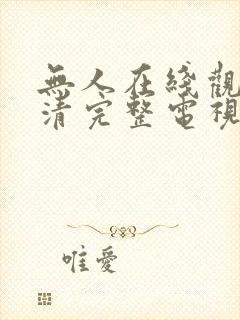 無人在綫觀
清完整電視
唯愛